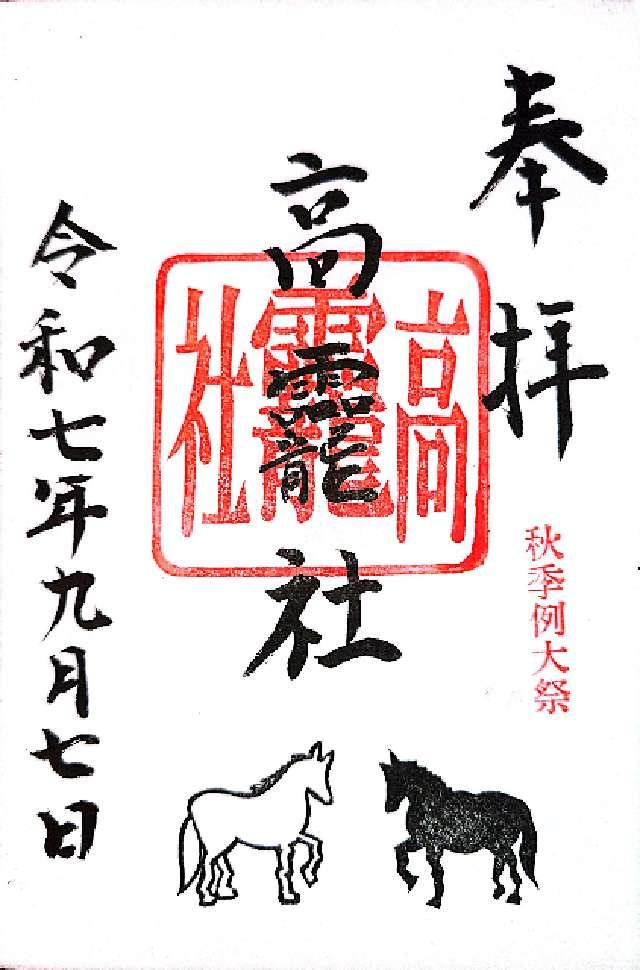 奉拝
秋季例大祭
高龗社
高龗社
令和七年九月七日